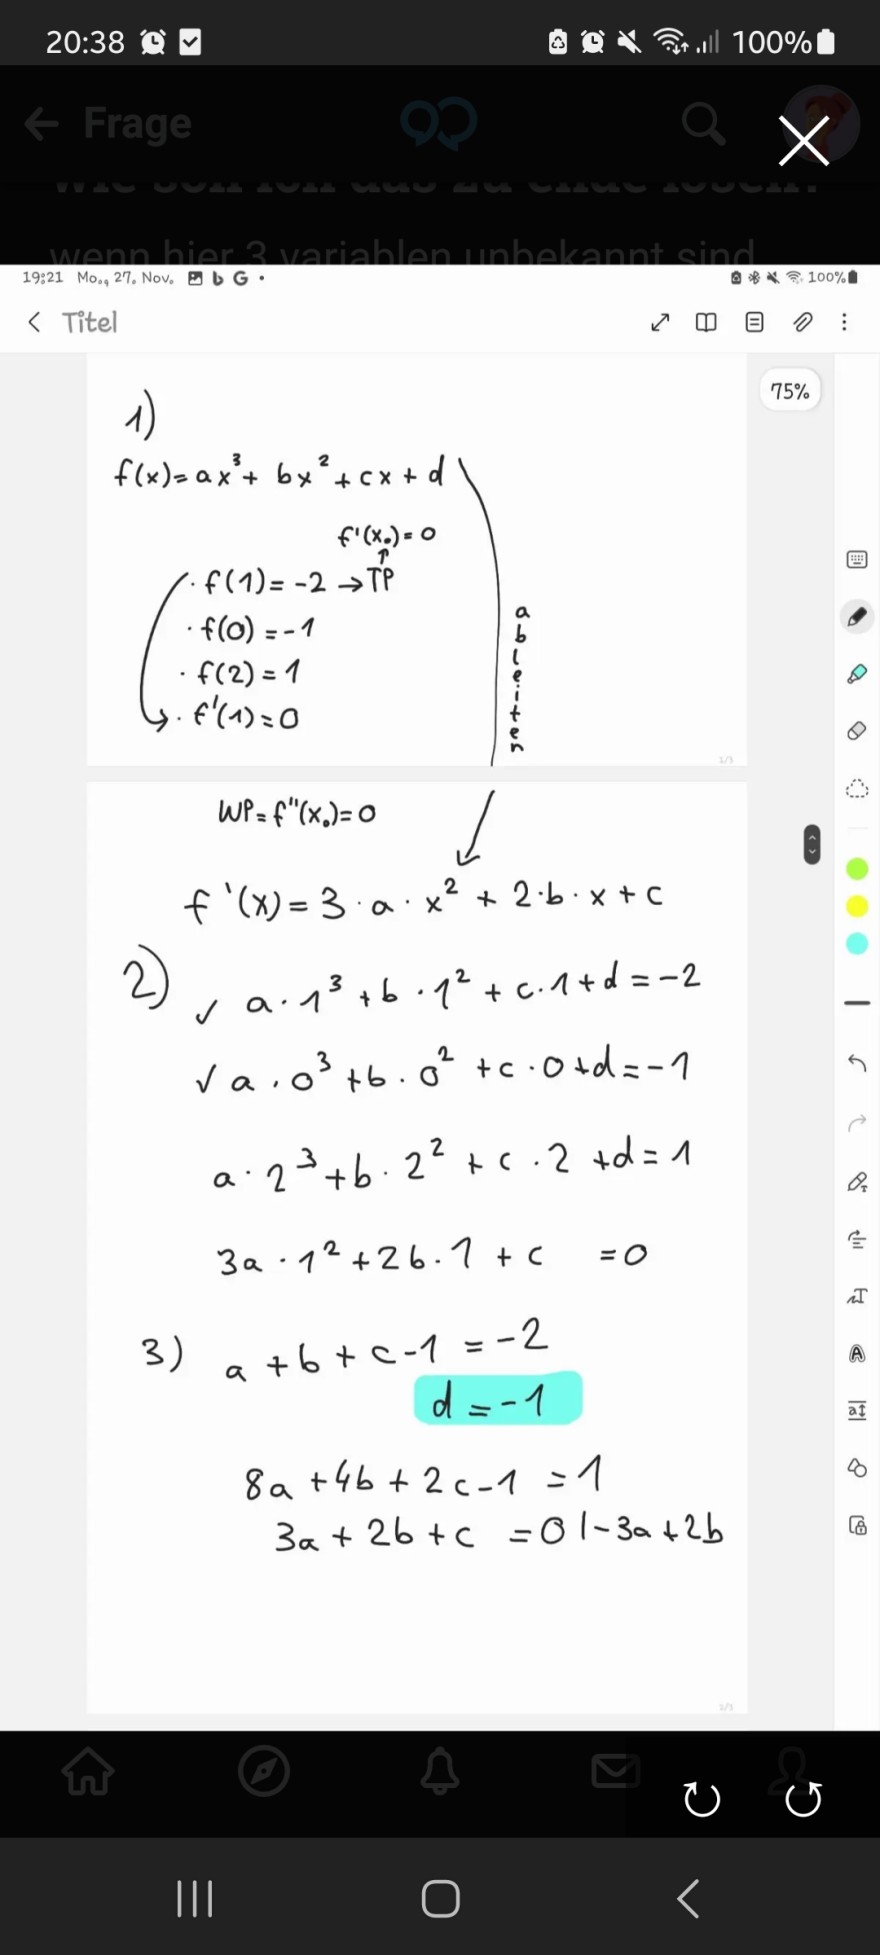 20:38 100%
Frage
wie soll ich das zu ende lösen?
wenn hier 3 variablen unbekannt sind
19:21 Mo., 27. Nov. b G • 100%
Titel
75%
1)
f(x)= ax³ + bx² + cx + d
f'(x₀) = 0
↑
· f(1) = -2 → TP
· f(0) = -1
· f(2) = 1
· f'(1) = 0
ableiten
1/3
WP = f''(x₀) = 0
f'(x) = 3 · a · x² + 2 · b · x + c
2)
✓ a · 1³ + b · 1² + c · 1 + d = -2
✓ a · 0³ + b · 0² + c · 0 + d = -1
a · 2³ + b · 2² + c · 2 + d = 1
3a · 1² + 2b · 1 + c = 0
3) a + b + c - 1 = -2
d = -1
8a + 4b + 2c - 1 = 1
3a + 2b + c = 0 | - 3a + 2b
2/3